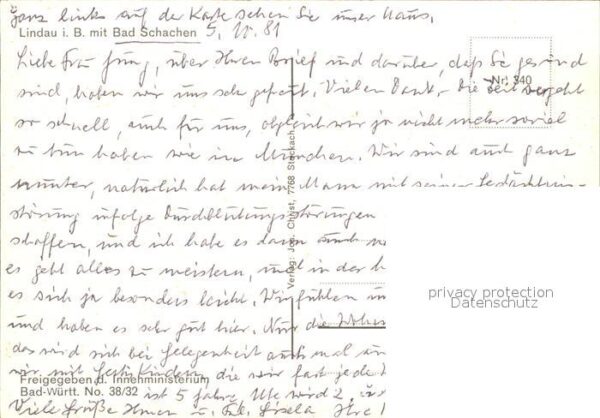 ganz links auf der Karte sehen Sie unser Haus.
Lindau i. B. mit Bad Schachen 5. IV. 81
Liebe Frau Jung, über Ihren Brief und darüber, daß Sie gesund
Nr. 340
sind, haben wir uns sehr gefreut. Vielen Dank. Die Zeit vergeht
so schnell, auch für uns, obgleich wir ja nicht mehr soviel
zu tun haben wie in München. Wir sind auch ganz
munter, natürlich hat mein Mann mit seiner Gedächtnis-
störung infolge Durchblutungsstörungen
schaffen, und ich habe es dann auch
es geht alles zu meistern, und in der
es sich ja besonders leicht. Wir fühlen
und haben es sehr gut hier. Nur die
das wird sich bei Gelegenheit auch mal
wir mit Kindern, die wir fast jede
ist 5 Jahre, Ute wird 2,
Viele Grüße Ihnen u. Gisela Ihre
Freigegeben d. Innenministerium
Bad-Württ. No. 38/32
Verlag: Joh. Christ, 7768 Stockach
privacy protection
Datenschutz